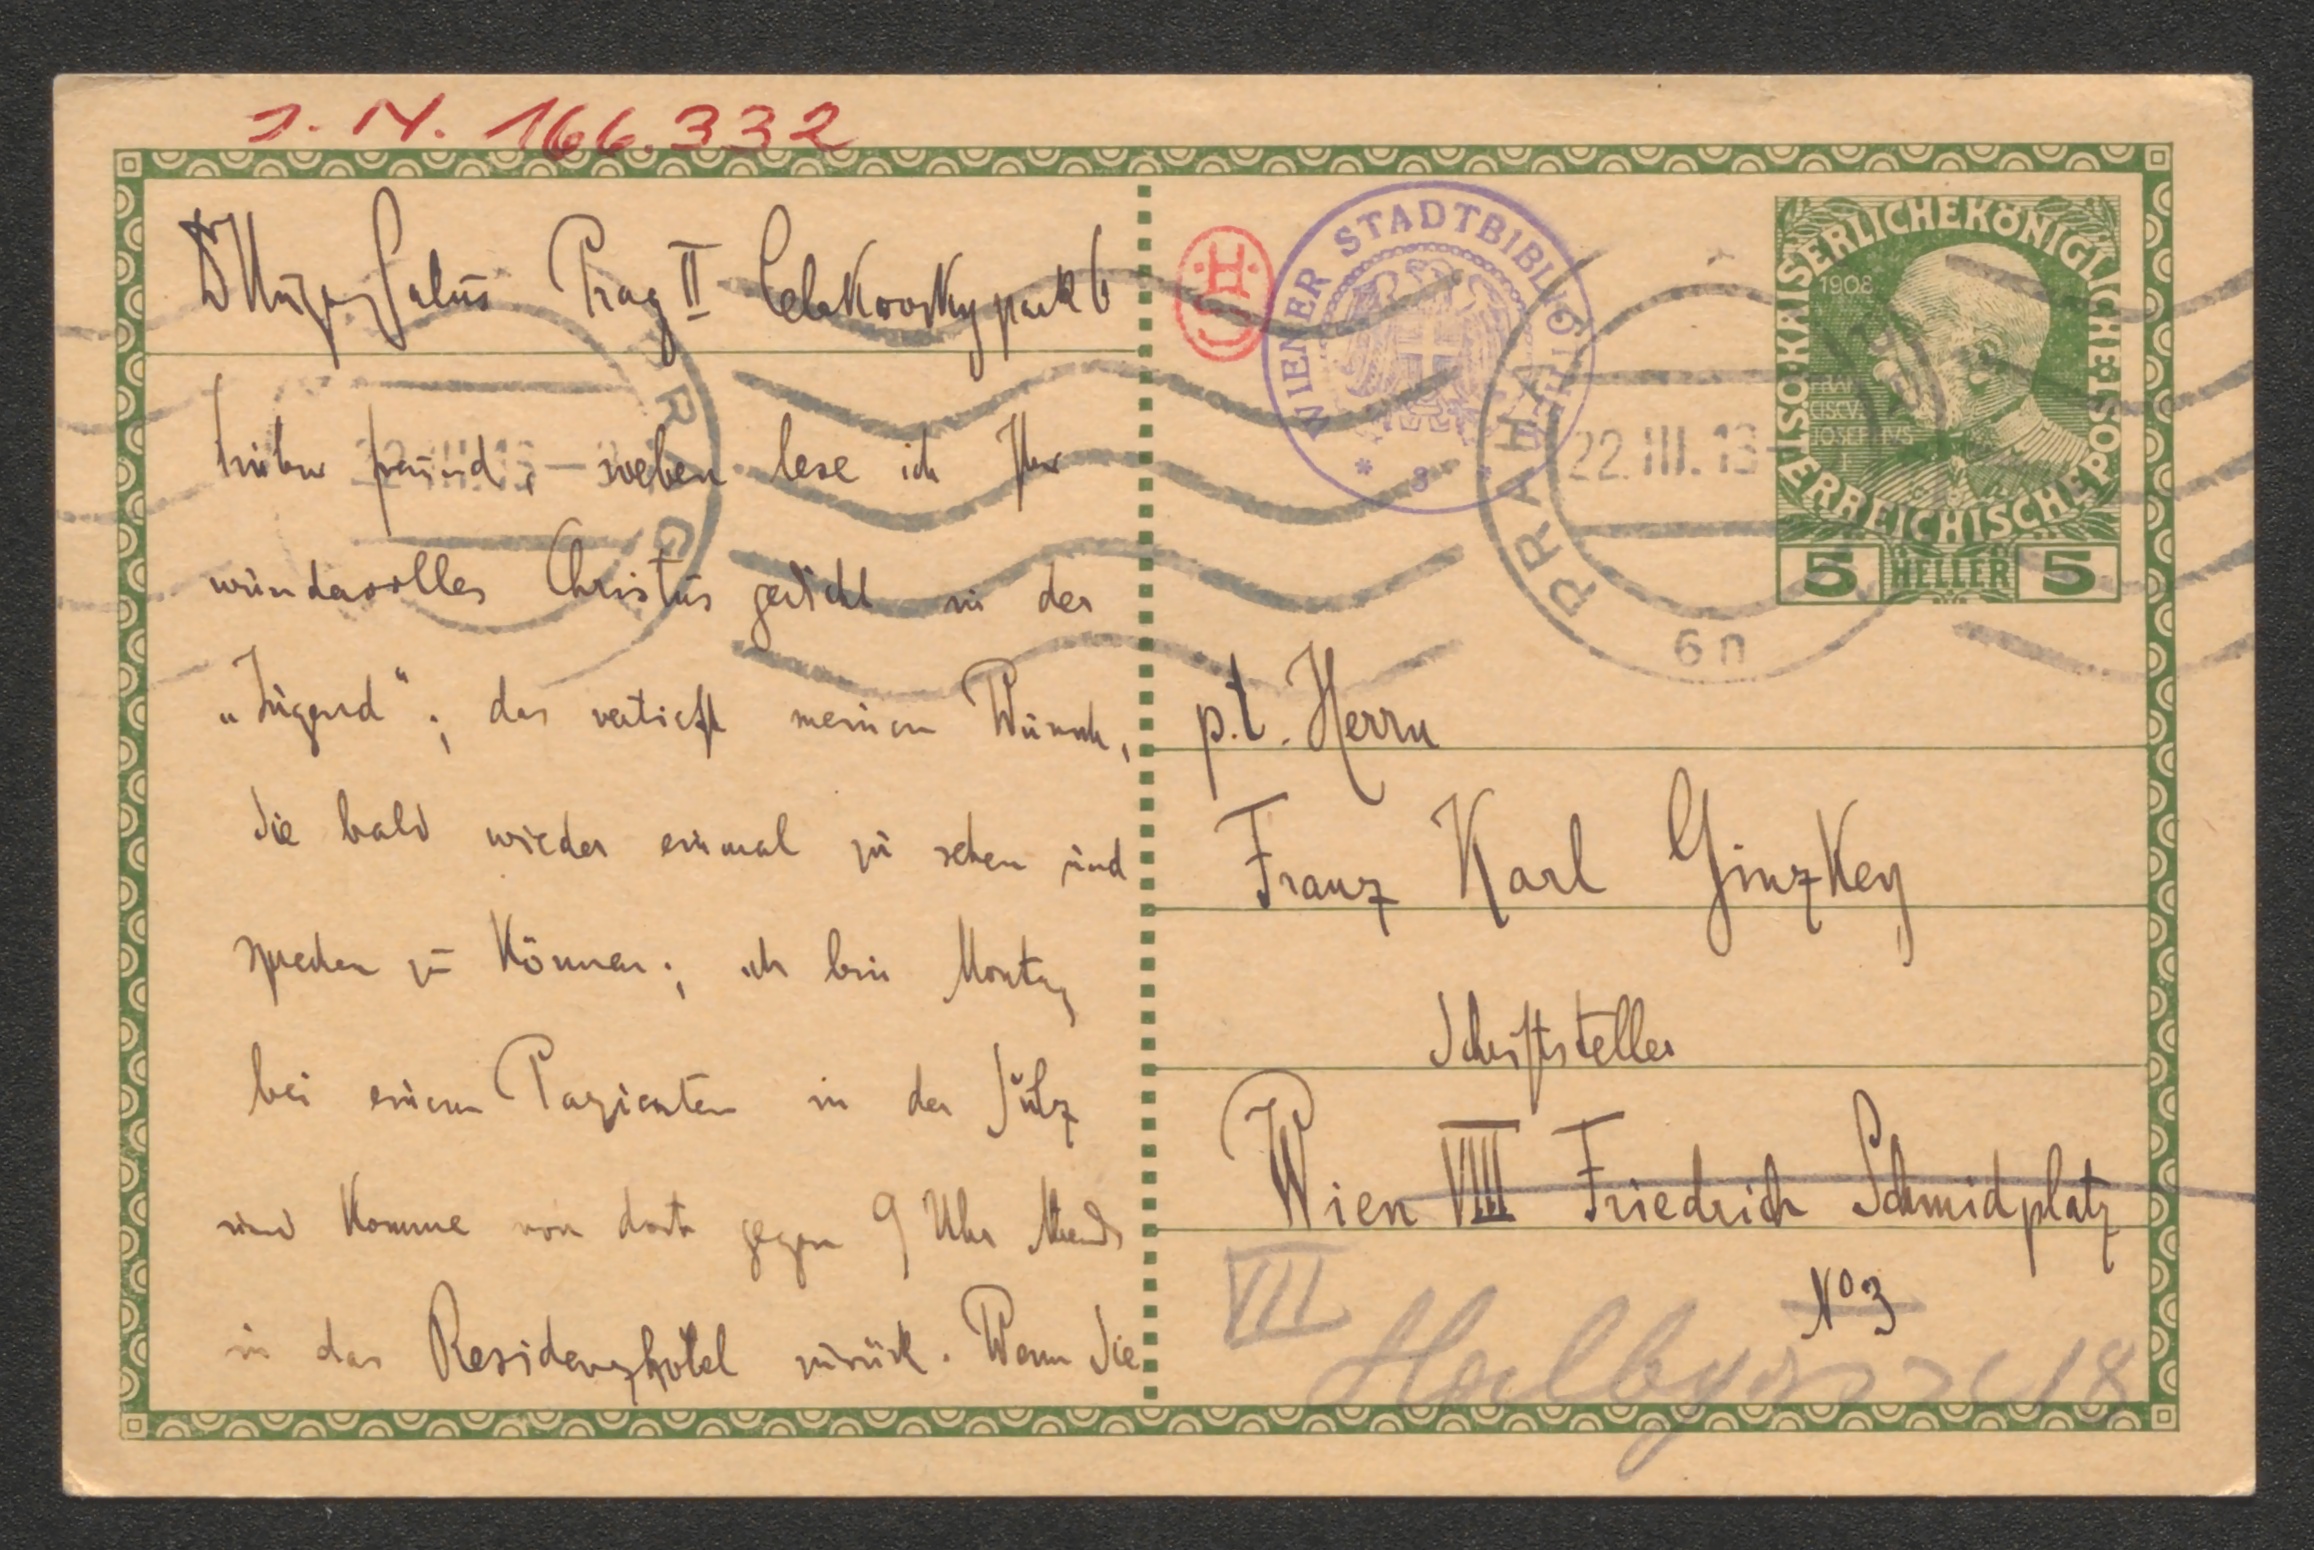 J. N. 166.332
Dr Hugo Salus Prag II Celakovskypark 6
Lieber Freund, soeben lese ich Ihr
wundervolles Christus gedicht in der
„Jugend“; das vertieft meinen Wunsch,
Sie bald wieder einmal zu sehen und
sprechen zu können; ich bin Montag
bei einem Patienten in der Sulz
und komme von dort gegen 9 Uhr Abends
in das Residenzhotel zurück. Wenn Sie
H
WIENER STADTBIBLIOTHEK
* 3 *
KAISERLICHEKÖNIGLICHE
ÖSTERREICHISCHEPOST
1908
FRAN
CISCVS
JOSEPHVS
I
5 HELLER 5
PRAG
22.III.13
PRAHA
22.III.13
6n
p.t. Herrn
Franz Karl Ginzkey
Schriftsteller
Wien VIII Friedrich Schmidplatz
No 3
VII
18